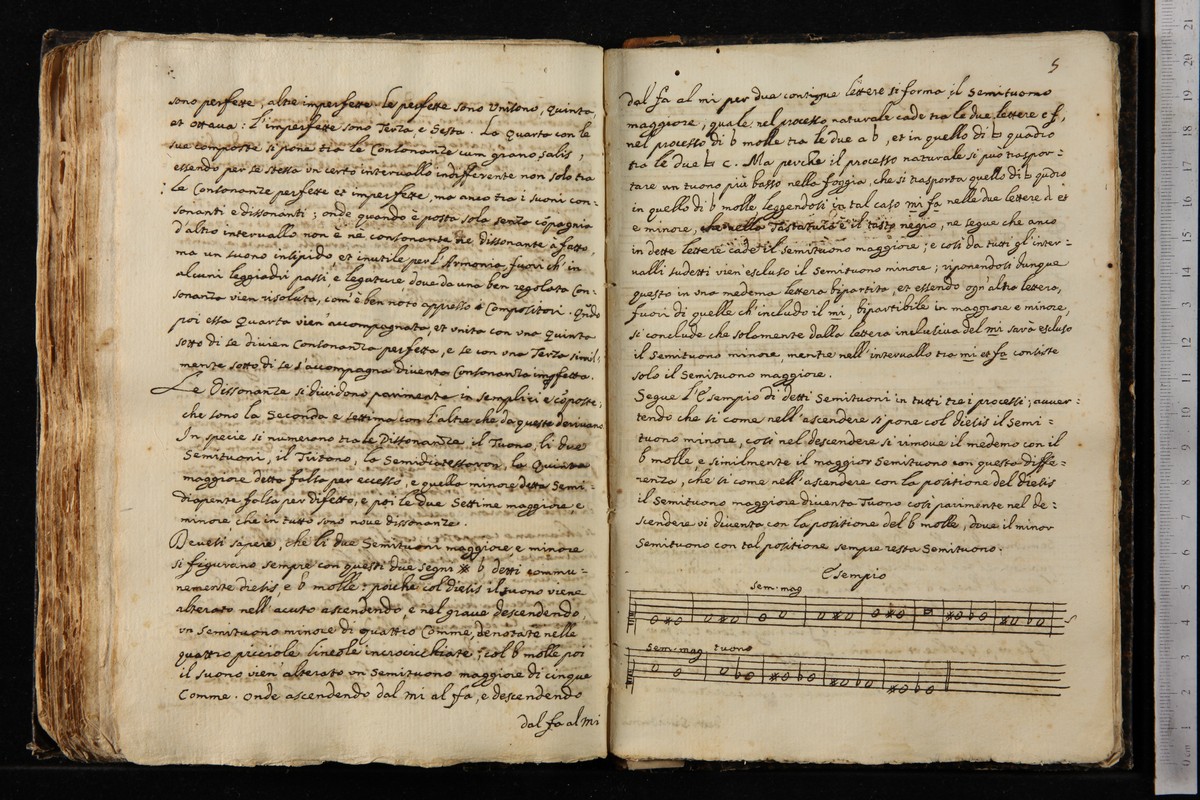 sono perfette, altre imperfette. Le perfette sono Unisono, Quinta,
et ottava: l'imperfette sono Terza, e Sesta. La Quarta con le
sue composte si pone tra le Consonanze cum grano salis,
essendo per se stessa un certo intervallo indifferente non solo tra
le Consonanze perfette et imperfette, ma anco tra i suoni con=
sonanti e dissonanti; onde quando è posta sola senza cōpagnia
d'altro intervallo non è ne consonante ne dissonante à fatto,
ma un suono insipido, et inutile per l'Armonia fuori ch' in
alcuni leggiadri passi, e legature dove da una ben regolata Con=
sonanza vien risoluta, com' è ben noto appresso è Compositori. Qñdo
poi essa Quarta vien' accompagnata, et unita con una Quinta
sotto di se divien Consonanza perfetta, e se con una Terza simil:
mente sotto di se s'accompagna diventa Consonanza imꝑfetta.
Le Dissonanze si dividono parimente in semplici e cōposte,
che sono la Seconda e settima con l'altre che da queste derivano.
In specie si numerano tra le Dissonanze il Tuono, li due
Semituoni, il Tritono, la Semidiatessaron, la Quinta
maggiore detta falsa per eccesso, e quella minore detta Semi=
diapente falsa per difetto, e poi le due Settime maggiore e
minore che in tutto sono nove dissonanze.
Devesi sapere, che li due Semituoni maggiore e minore
si figurano sempre con questi due segni ※ b detti commu=
nemente diesis e b molle: poiche col Diesis il suono viene
alterato nell' acuto ascendendo, e nel grave descendendo,
un Semituono minore di quattro Comme, denotate nelle
quattro picciole lineole incrocicchiate; col b molle poi
il suono vien alterato un Semituono maggiore di cinque
Comme. Onde ascendendo dal mi al fa, e descendendo
dal fa al mi
5
dal fa al mi per due contigue lettere si forma il Semituono
maggiore, quale nel processo naturale cade tra le due lettere e f,
nel processo di b molle tra le due a b, et in quello di ♮ quadro
tra le due ♮ c. Ma perche il processo naturale si può traspor=
tare un tuono più basso nella foggia, che si trasporta quello di ♮ qudro
in quello di b molle leggendosi in tal caso mi fa nelle due lettere d et
e minore, che nella Tastatura è il tasto negro, ne segue che anco
in dette lettere cade il semituono maggiore; e così da tutti gl'inter=
valli sudetti vien escluso il Semituono minore; riponendosi dunque
questo in una medema lettera bipartita, et essendo ogn'altra lettera,
fuori di quelle ch' includo il mi, bipartibile in maggiore e minore,
si conclude che solamente dalla lettera inclusiva del mi sarà escluso
il Semituono minore, mentre nell' intervallo tra mi et fa consiste
solo il Semituono maggiore.
Segue l'Esempio di detti Semituoni in tutti tre i processi; avver=
tendo che si come nell' ascendere si pone col diesis il Semi=
tuono minore, così nel descendere si rimove il medemo con il
b molle e similmente il maggior Semituono con questa diffe=
renza, che si come nell' ascendere con la positione del diesis
il Semituono maggiore diventa Tuono così parimente nel de=
scendere vi diventa con la positione del b molle, dove il minor
Semituono con tal positione sempre resta Semituono.
Esempio
sem: mag
sem: mag tuono